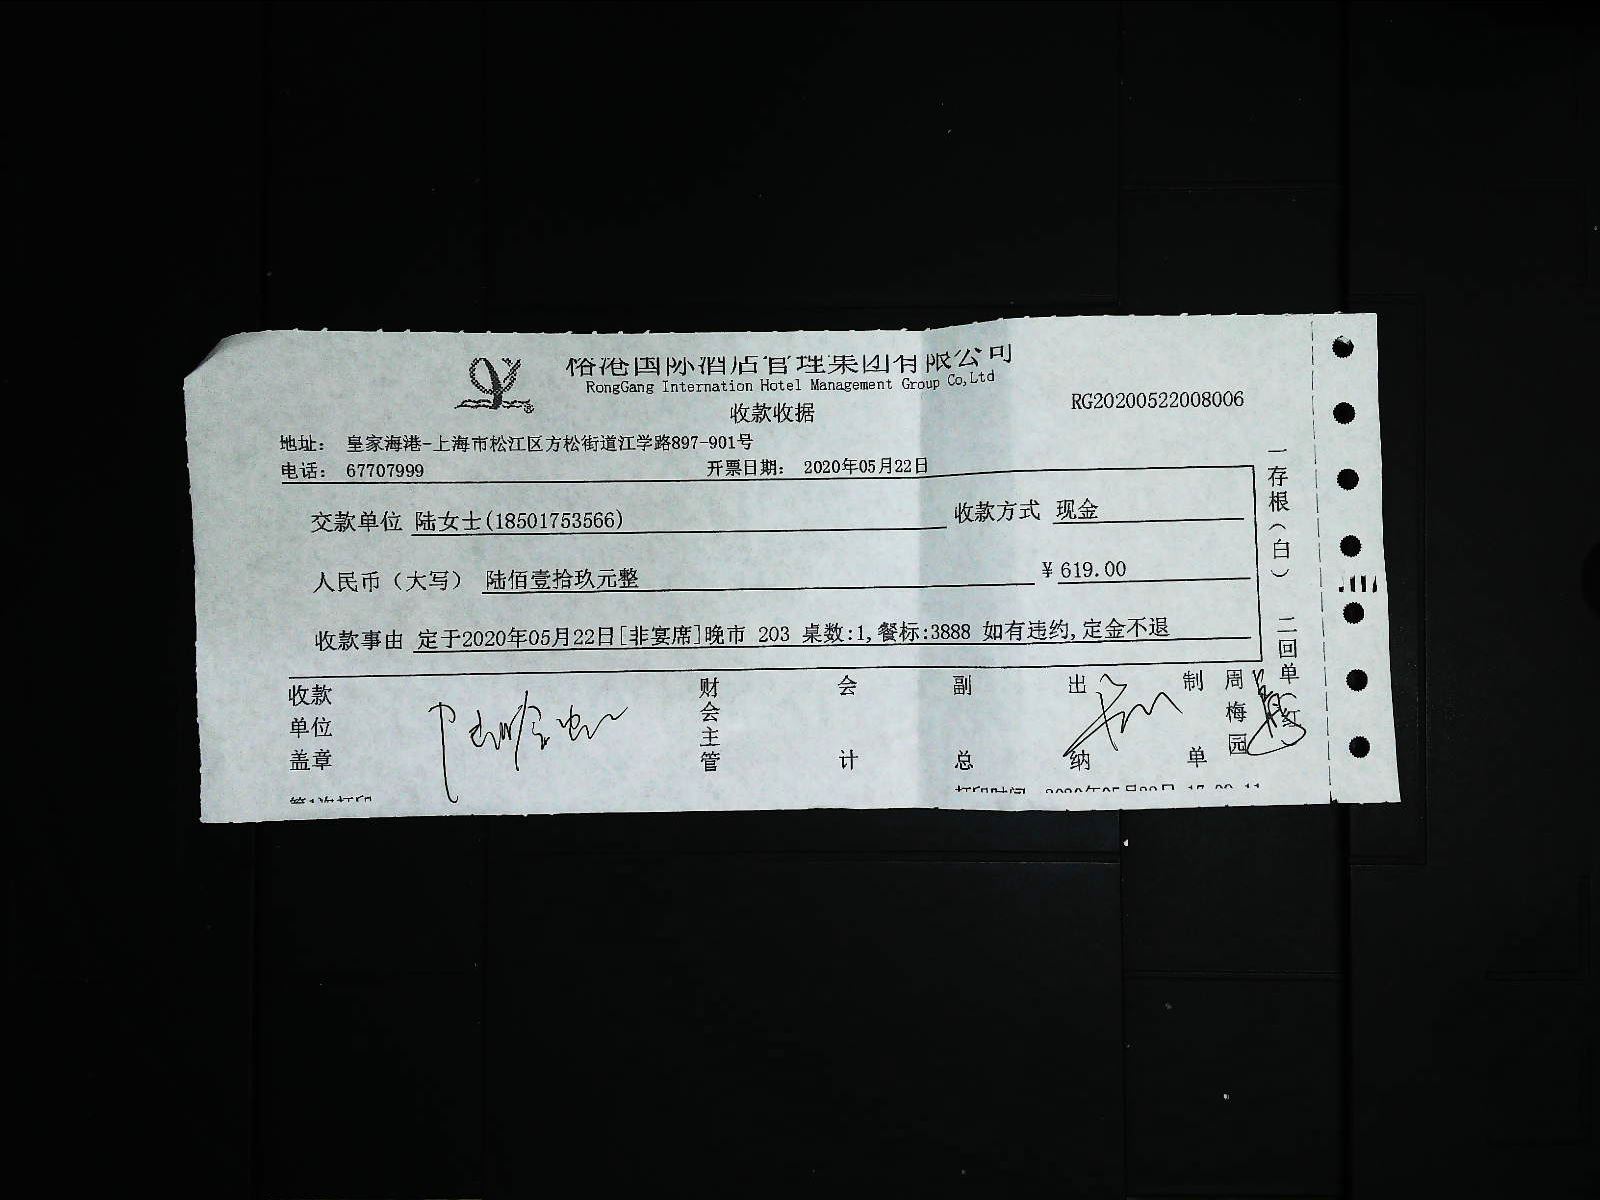 榕港国际酒店管理集团有限公司
RongGang Internation Hotel Management Group Co,Ltd
收款收据
RG20200522008006
地址： 皇家海港-上海市松江区方松街道江学路897-901号
电话： 67707999 开票日期： 2020年05月22日
交款单位 陆女士(18501753566) 收款方式 现金
人民币（大写） 陆佰壹拾玖元整 ¥ 619.00
收款事由 定于2020年05月22日[非宴席]晚市 203 桌数:1,餐标:3888 如有违约,定金不退
收款单位盖章
财会主管
会计
副总
出纳
制单 周梅园
一存根（白） 二回单（红
第1次打印
打印时间 2020年05月22日